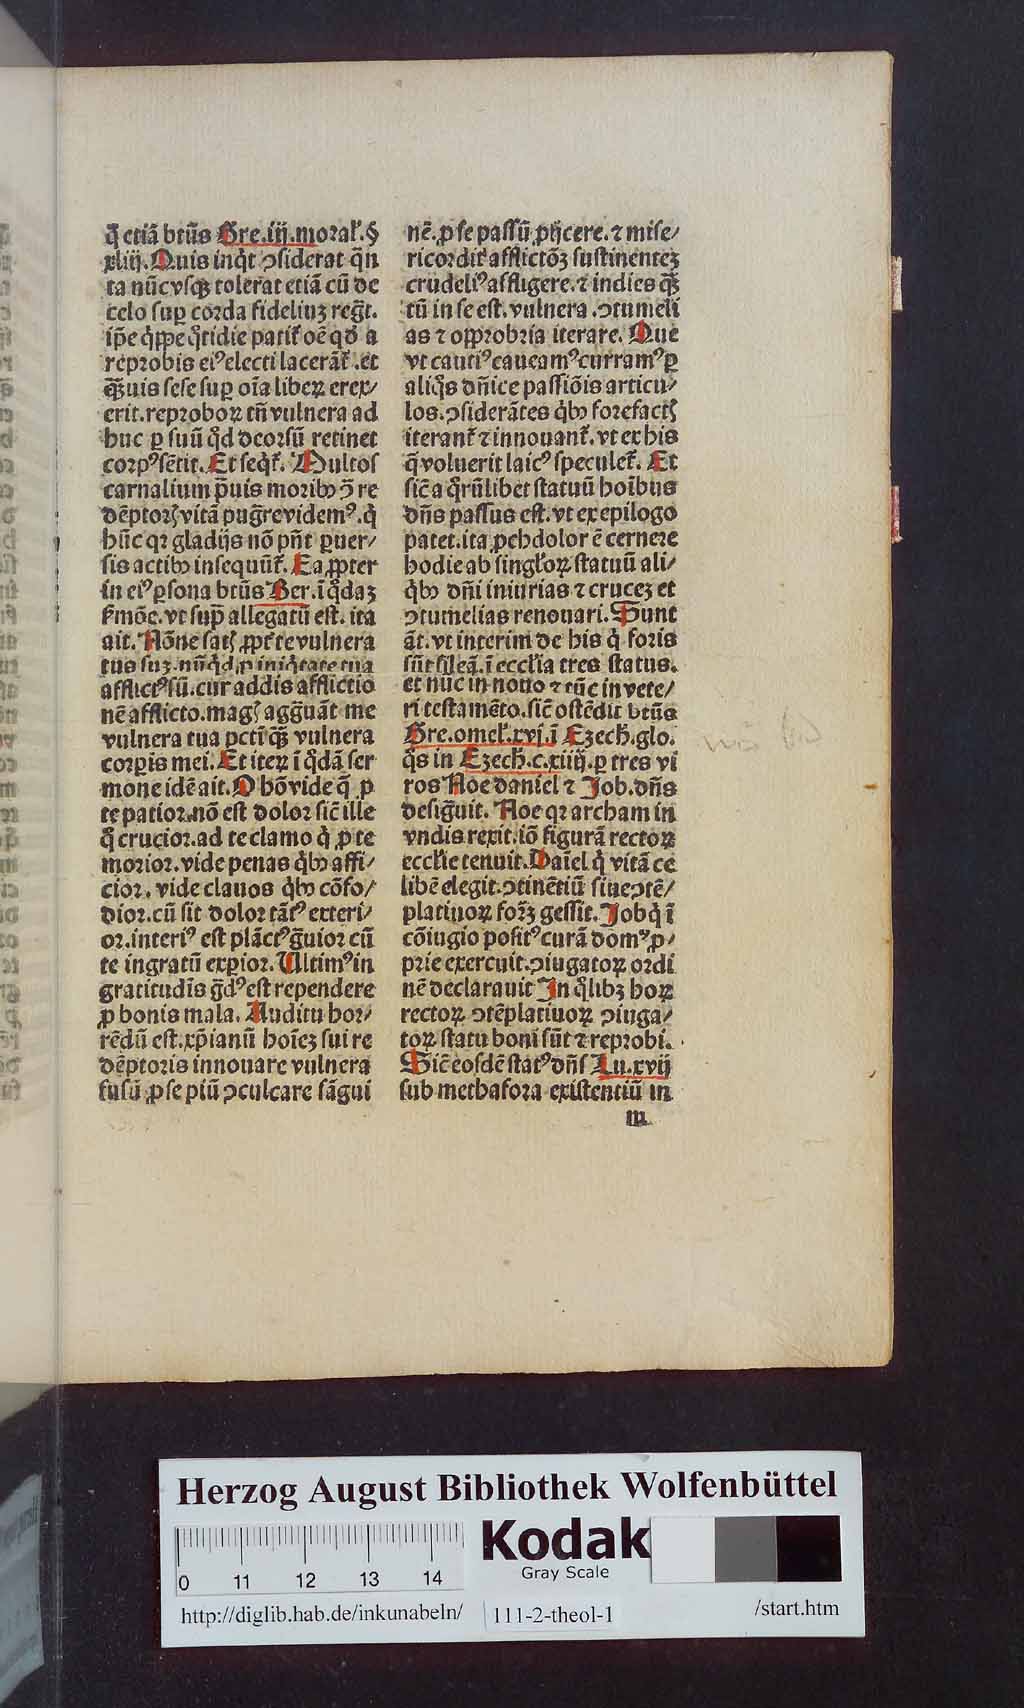 q̄ etiā btūs Gre.iij.moral̕.§
xliij. Quis inq̇t ꝯsiderat q̄n
ta nūcvsqꝫ tolerat etiā cū de
celo suꝑ corda fideliuꝫ reg̅t.
ip̄e q̇ꝓpe q̊tidie patit̕ oē qd̕ a
reprobis eiꝰ electi lacerāt̕ .et
qꝫuis sese suꝑ oīa libeꝝ erex/
erit.reproboꝝ tn̄ vulnera ad
huc ꝑ suū q̊d deorsū retinet
corpꝰ sētit. Et seq̇t̕. Multos
carnalium p̄uis moribꝰ ꝯ̄ re
dēptorꝭ vitā pug̅re videmꝰ.q̇
hūc qꝛ gladijs nō pn̄t ꝑuer/
sis actibꝰ insequūt̕. Ea ꝓpter
in eiꝰ ꝑsona btūs Ber.ī q̊daꝫ
ẜmōe. vt sup̄ allegatū est. ita
ait. Nōne satꝭ ꝓpt̕ te vulnera
tus suꝫ. nūq̊d ꝓ iniq̇tate tua
afflictꝰ sū. cur addis afflictio
nē afflicto. magꝭ agg̅uāt me
vulnera tua pcti̅ qꝫ vulnera
corꝑis mei. Et iteꝝ ī q̊dā ser
mone idē ait. O hō vide q̄ ꝑ
te patior. nō est dolor sic̄ ille
q̊ crucior. ad te clamo q̇ ꝓ te
morior. vide penas q̇bꝰ affi/
cior. vide clauos q̇bꝰ cōfo/
dior. cū sit dolor tātꝰ exteri/
or. interiꝰ est plāctꝰ g̅uior cū
te ingratū exꝑior. Ultimꝰ in
gratitudīs g̅dꝰ est rependere
ꝓ bonis mala. Auditu hor/
rēdū est. xp̄ianū hoīeꝫ sui re
dēptoris innouare vulnera
fusū ꝓ se piū ꝯculcare sāgui
nē. ꝓ se passū ꝓijcere. ⁊ mise/
ricordit̕ afflictōꝫ sustinenteꝫ
crudeliꝰ affligere. ⁊ indies qꝫ
tū in se est. vulnera .ꝯtumeli
as ⁊ opprobria iterare. Que
vt cautiꝰ caueamꝰ curramꝰ ꝑ
aliq̊s dn̄ice passiōis articu/
los. ꝯsiderātes q̇bꝰ forefactꝭ
iterant̕ ⁊ innouant̕. vt ex his
q̄ voluerit laicꝰ speculet̕. Et
sic̄ a q̊rūlibet statuū hoībus
dn̄s passus est. vt ex epilogo
patet. ita ꝓchdolor ē cernere
hodie ab singl̕oꝝ statuū ali/
q̇bꝰ dn̄i iniurias ⁊ cruceꝫ et
ꝯtumelias renouari. Sunt
āt. vt interim de his q̇ foris
sūt sileā. ī eccl̕ia tres status.
et nūc in nouo ⁊ tūc in vete/
ri testamēto. sic̄ ostēdit btūs
Gre. omel̕.xvj.ī Ezech̕. glo.
q̊s in Ezech̕.c.xiiij. ꝑ tres vi
ros Noe daniel ⁊ Job. dn̄s
desig̅uit. Noe qꝛ archam in
vndis rexit. iō figurā rectoꝝ
eccl̕ie tenuit. Daīel q̇ vitā ce
libē elegit. ꝯtinētiū siue ꝯtē/
platiuoꝝ for̄ꝫ gessit. Job q̇ ī
cōiugio positꝰ curā domꝰ ꝓ/
prie exercuit. ꝯiugatoꝝ ordi
nē declarauit In q̊libꝫ hoꝝ
rectoꝝ ꝯtēplatiuoꝝ ꝯiuga/
toꝝ statu boni sūt ⁊ reprobi.
Sic̄ eosdē statꝰ dn̄s Lu.xvij
sub methafora existentiū in
m
Herzog August Bibliothek Wolfenbüttel
0 11 12 13 14
Kodak
Gray Scale
http://diglib.hab.de/inkunabeln/ 111-2-theol-1 /start.htm